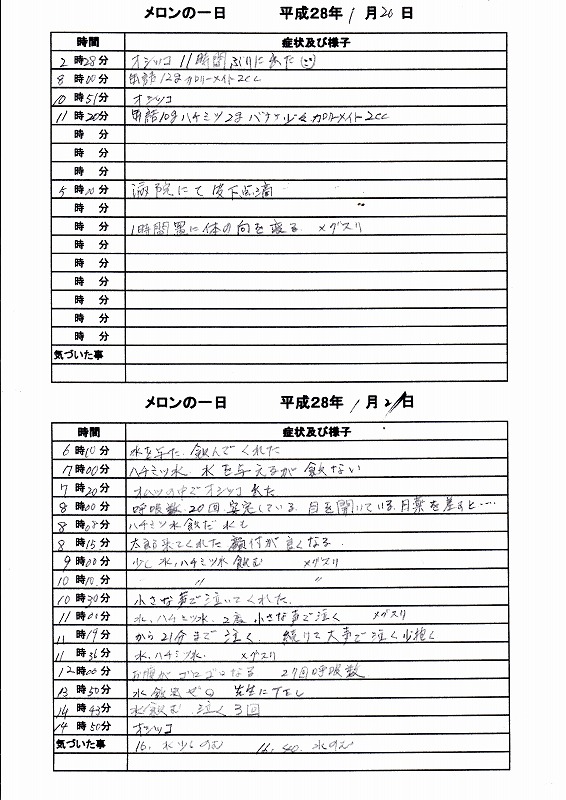 メロンの一日 平成28年 1月20日
時間 症状及び様子
2時28分 オシッコ 11時間ぶりに出た
8時00分 缶詰12g カロリーメイト2cc
10時51分 オシッコ
11時20分 缶詰10g ハチミツ2g バナナ少々 カロリーメイト2cc
時 分
時 分
時 分
5時00分 病院にて皮下点滴
時 分 〃
時 分 1時間置に体の向を変る メグスリ
時 分
時 分
時 分
時 分
時 分
時 分
気づいた事
メロンの一日 平成28年 1月21日
時間 症状及び様子
6時10分 水を与た 飲んでくれた
7時00分 ハチミツ水、水を与えるが飲ない
7時20分 オムツの中でオシッコ出た
8時00分 呼吸数20回 安定している 目を開いている 目薬を差すと…
8時08分 ハチミツ水飲だ 水も
8時15分 太郎来てくれた 顔付が良くなる
9時00分 少し水、ハチミツ水飲む メグスリ
10時10分 〃 〃
10時30分 小さな声で泣いてくれた
11時00分 水、ハチミツ水、2度小さな声で泣く メグスリ
11時19分 から21分まで泣く 続けて大声で泣く 少抱く
11時36分 水、ハチミツ水、 メグスリ
12時00分 お腹がゴロゴロなる 27回呼吸数
13時50分 水飲ませる 先生にTEL
14時43分 水飲む 泣く3回
14時50分 オシッコ
気づいた事 16、水少しのむ 16、40、水のむ